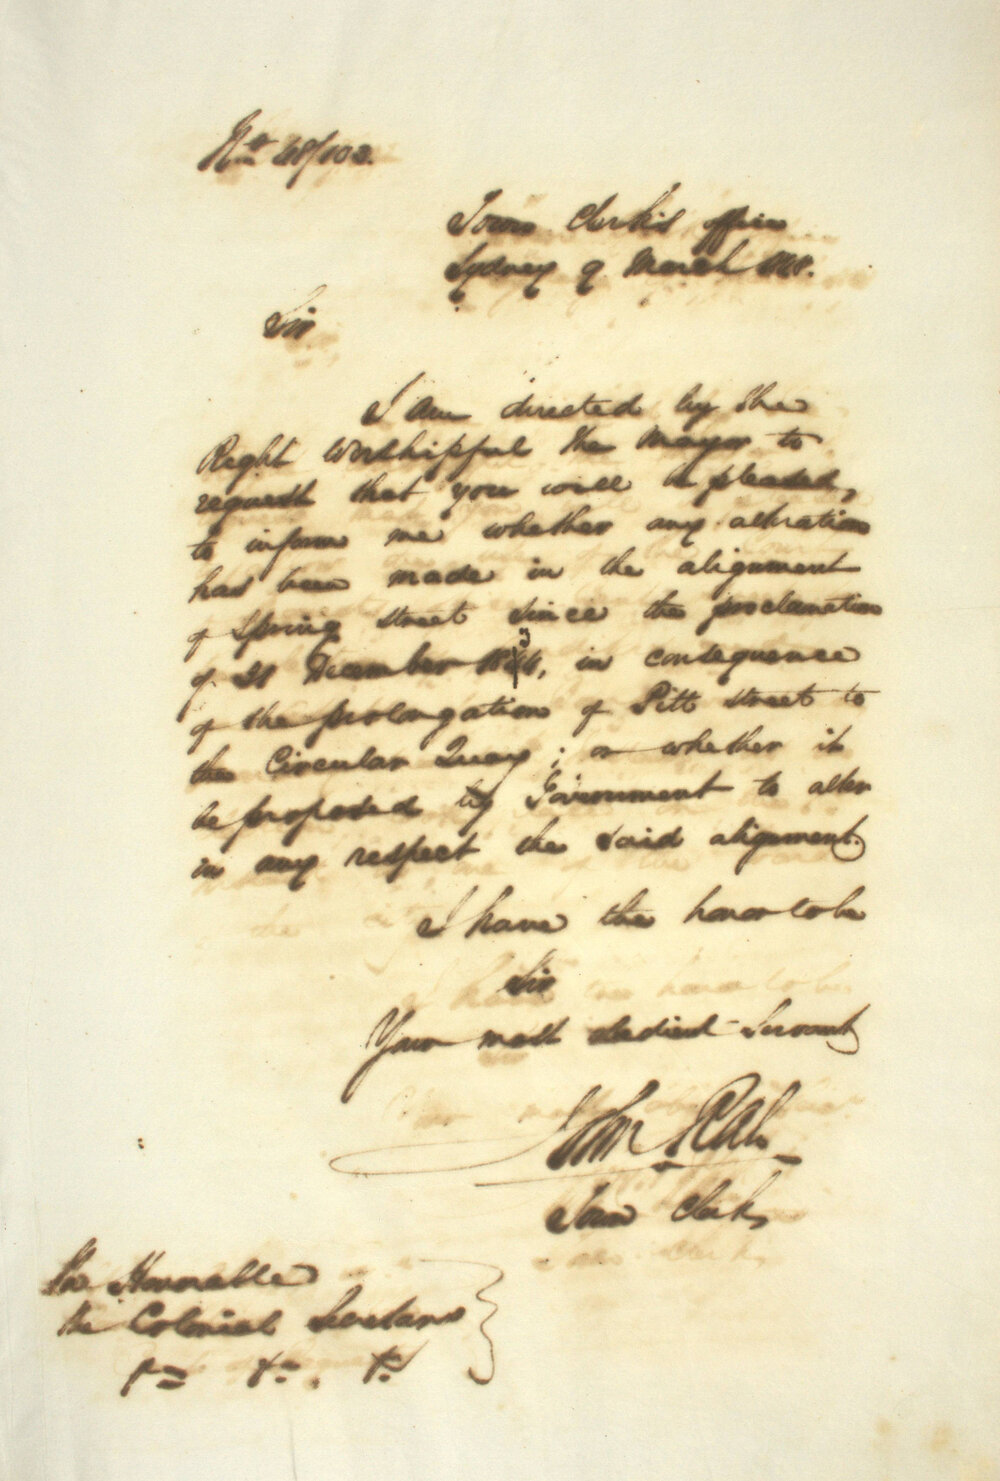 No. 48/103.
Town Clerk's Office
Sydney 9 March 1848.
Sir
I am directed by the
Right Worshipful the Mayor to
request that you will be pleased,
to inform me whether any alteration
has been made in the alignment
of Spring Street since the proclamation
of 21 December 184, in consequence
of the prolongation of Pitt Street to
the Circular Quay; or whether it
be proposed by Government to alter
in any respect the said alignment.
I have the honor to be
Sir
Your most obedient Servant
John Rae
Town Clerk
The Honorable
the Colonial Secretary